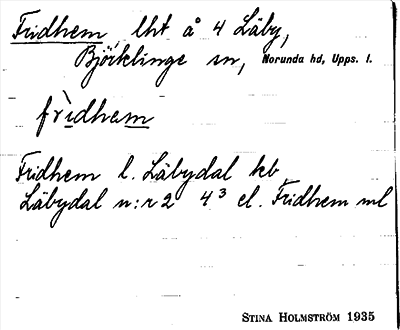 Fridhem lht å 4 Läby,
Björklinge sn, Norunda hd, Upps. l.
frìdhem
Fridhem l. Läbydal kb
Läbydal n:r 2 4³ el. Fridhem ml
STINA HOLMSTRÖM 1935